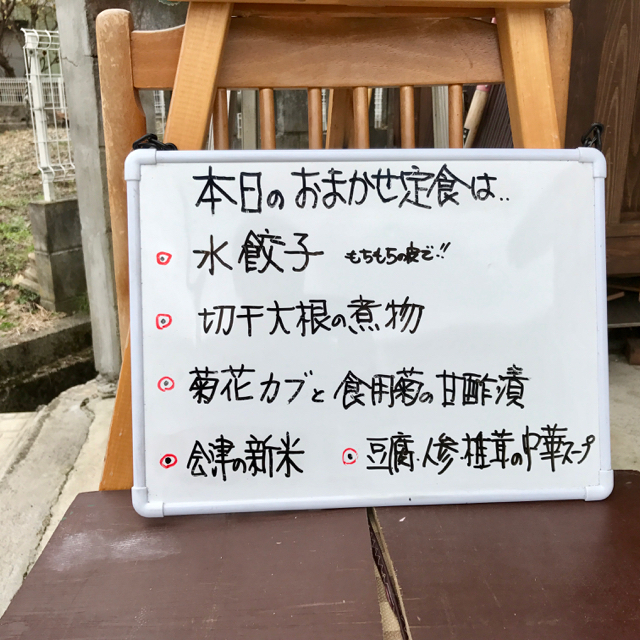 本日のおまかせ定食は..
水餃子 もちもちの皮で!!
切干大根の煮物
菊花カブと食用菊の甘酢漬
会津の新米 豆腐・人参・椎茸の中華スープ